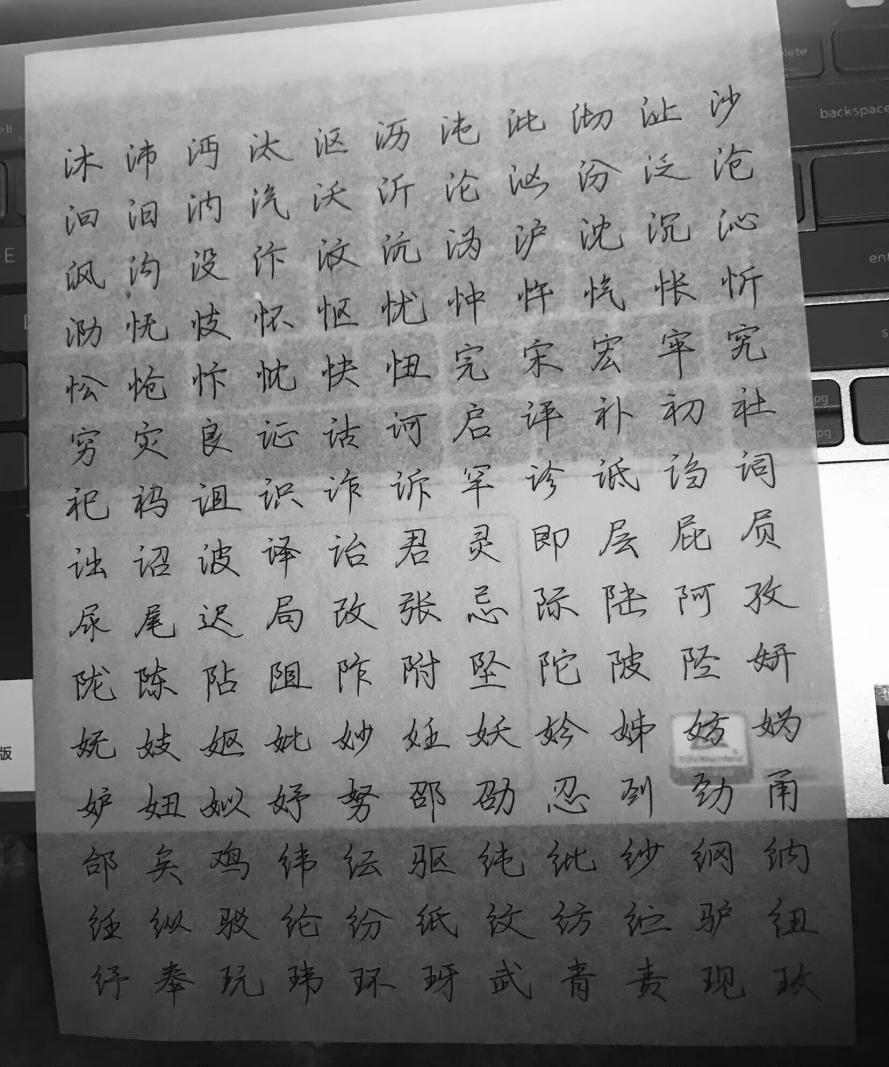 沐 沛 沔 汰 沤 沥 沌 沘 沏 沚 沙
汩 汨 汭 汽 沃 沂 沦 汹 汾 泛 沧
沨 沟 没 汴 汶 沆 沩 沪 沈 沉 沁
泐 怃 忮 怀 怄 忧 忡 忤 忾 怅 忻
忪 怆 忭 忱 快 忸 完 宋 宏 牢 究
穷 灾 良 证 诂 诃 启 评 补 初 社
祀 祃 诅 识 诈 诉 罕 诊 诋 诌 词
诎 诏 诐 译 诒 君 灵 即 层 屁 屃
尿 尾 迟 局 改 张 忌 际 陆 阿 孜
陇 陈 阽 阻 阼 附 坠 陀 陂 陉 妍
妩 妓 妪 妣 妙 妊 妖 妗 姊 妨 妫
妒 妞 姒 妤 努 邵 劭 忍 刭 劲 甬
邰 矣 鸡 纬 纭 驱 纯 纰 纱 纲 纳
纴 纵 驳 纶 纷 纸 纹 纺 纻 驴 纽
纾 奉 玩 玮 环 玡 武 青 责 现 玫
backspace
E
pg
pg
版